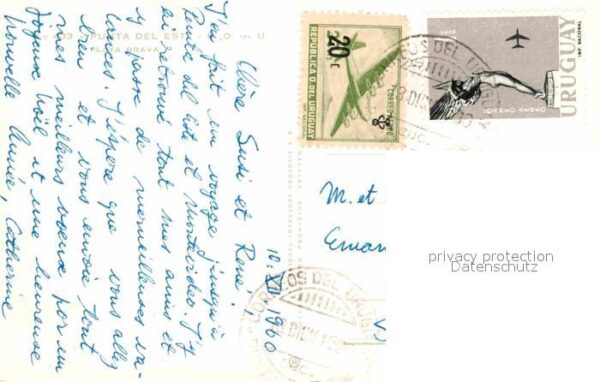 PUNTA DEL ESTE - R.O. del U.
PLAYA BRAVA
10. XII 1960
Chère Susi et René,
J'ai fait un voyage jusqu'à
Punta del Este et Montevideo. J'y
ai retrouvé tout mes amis et
y passe de merveilleuses va-
cances. J'espère que vous allez
bien et vous envoie tout
mes meilleurs voeux pour un
joyeux Noël et une heureuse
Nouvelle Année, Catherine
M. et
REPUBLICA O. DEL URUGUAY
20 C
CORREO AEREO
CORREO AEREO
URUGUAY
IMP. NACIONAL
CORREOS DEL URUGUAY
13 DIC 1960
CORREOS DEL URUGUAY
13 DIC 1960
privacy protection
Datenschutz